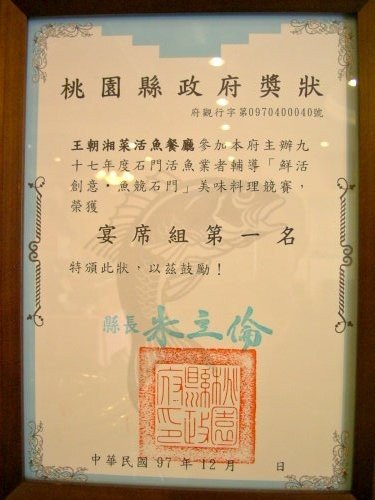 桃園縣政府獎狀
府觀行字第0970400040號
王朝湘菜活魚餐廳參加本府主辦九
十七年度石門活魚業者輔導「鮮活
創意‧魚競石門」美味料理競賽，
榮獲
宴席組第一名
特頒此狀，以茲鼓勵！
縣長 朱立倫
桃園縣政府印
中華民國 97 年 12 月 日